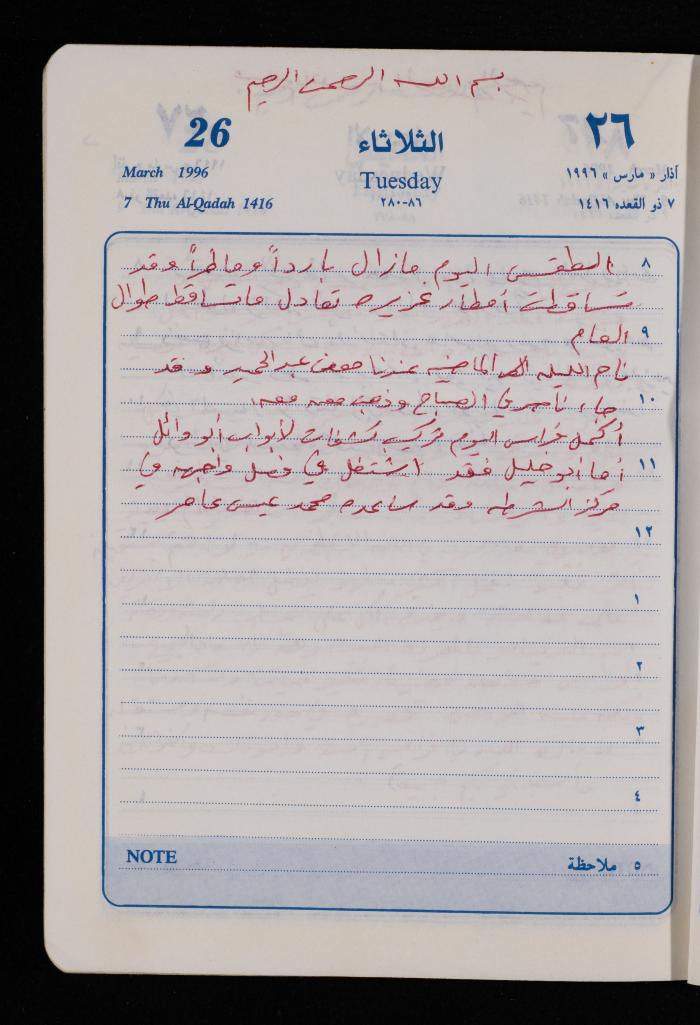 بسم الله الرحمن الرحيم
26 الثلاثاء ٢٦
March 1996 Tuesday آذار « مارس » ١٩٩٦
7 Thu Al-Qadah 1416 ٨٦-٢٨٠ ٧ ذو القعده ١٤١٦
٨ الطقس اليوم مازال بارداً وماطراً وقد
تساقطت أمطار غزيره تعادل ماتساقط طوال
٩ العام
نام الليله الماضيه عندنا معن عبدالحميد وقد
١٠ جاء ناصر في الصباح وذهب معه
أكمل فراس اليوم تركيب كشفات لأبواب أبو وائل
١١ أما ابو خليل فقد اشتغل في فصل واجهه في
مركز الشرطه وقد ساعده محمد عيسى عامر
١٢
١
٢
٣
٤
NOTE ٥ ملاحظة